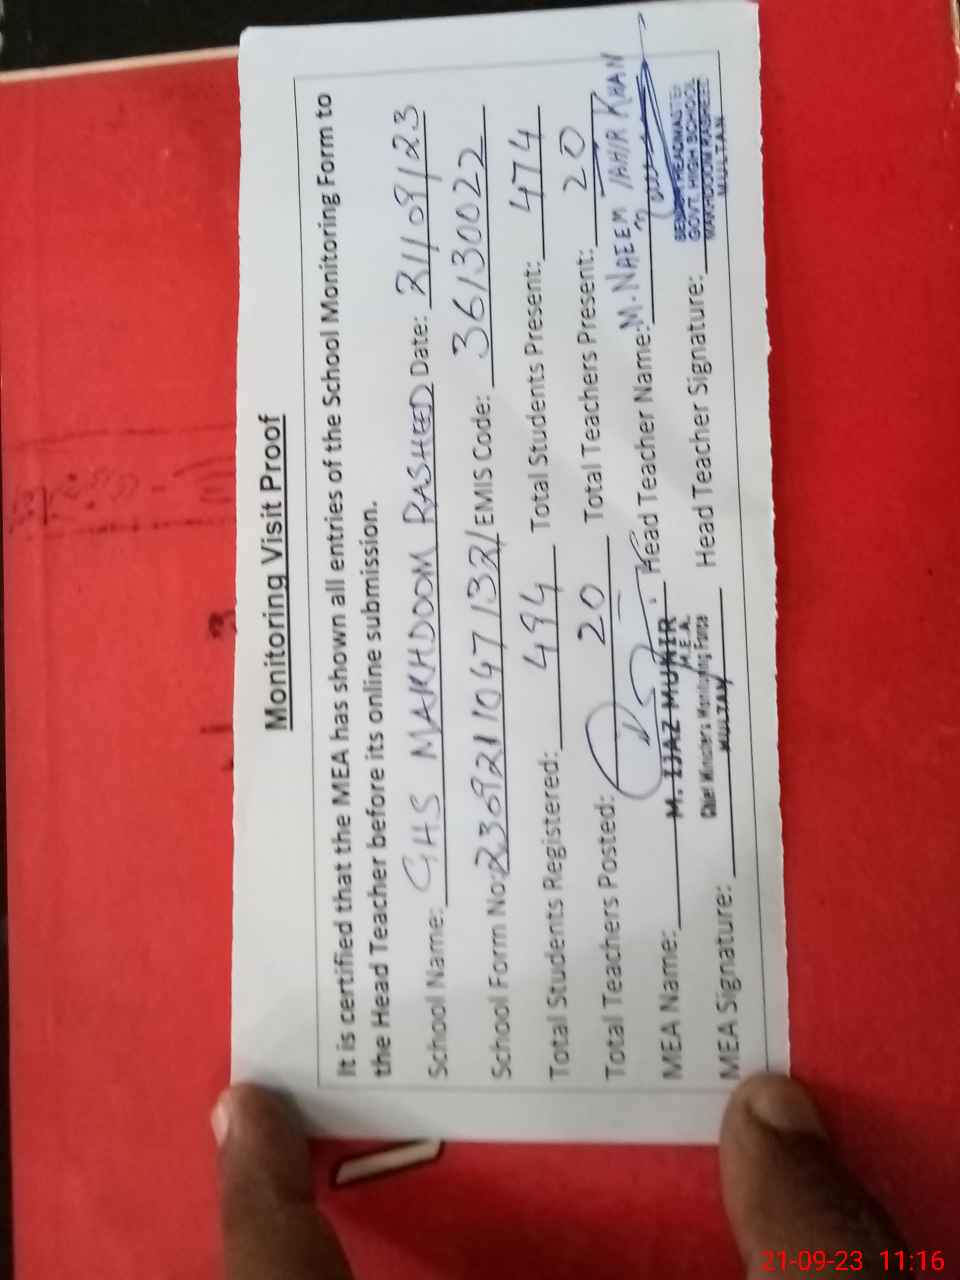 Monitoring Visit Proof
It is certified that the MEA has shown all entries of the School Monitoring Form to
the Head Teacher before its online submission.
School Name: GHS MAKHDOOM RASHEED Date: 21/09/23
School Form No: EMIS Code: 36130022
Total Students Registered: 494 Total Students Present: 474
Total Teachers Posted: 20 Total Teachers Present: 20
MEA Name: M. IJAZ MUNIR Head Teacher Name: M. NAEEM TAHIR KHAN
M.E.A.
Chief Minister's Monitoring Force
MULTAN
MEA Signature: Head Teacher Signature:
HEADMASTER
GOVT. HIGH SCHOOL
MAKHDOOM RASHEED
MULTAN
21-09-23 11:16